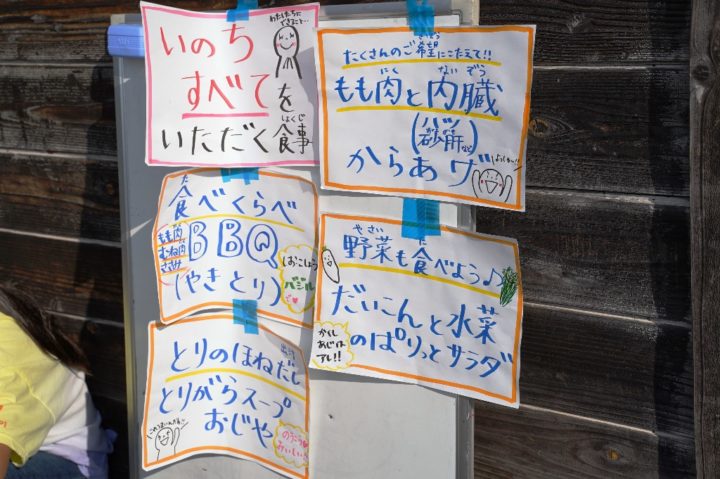 わたしたちに
できること…
いのち
すべて
を
いただく食事
たくさんのご希望にこたえて!!
もも肉と内臓
(ハツ
砂肝など)
からあげ
食べくらべ
もも肉
むね肉
ささみ
BBQ
(やきとり)
しおこしょう
バジル
で♥
野菜も食べよう♪
だいこんと水菜
のぱりっとサラダ
かくし
あじは
アレ!!
とりのほねだし
とりがらスープ
おじや
のうこう